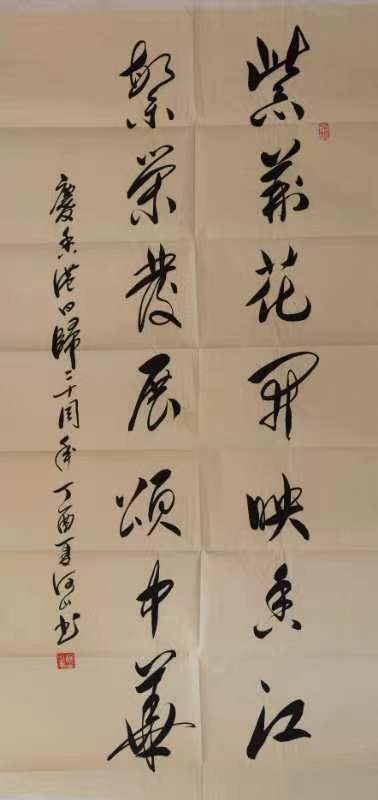 紫荆花開映香江
繁榮發展頌中華
慶香港回歸二十周年 丁酉夏河山书